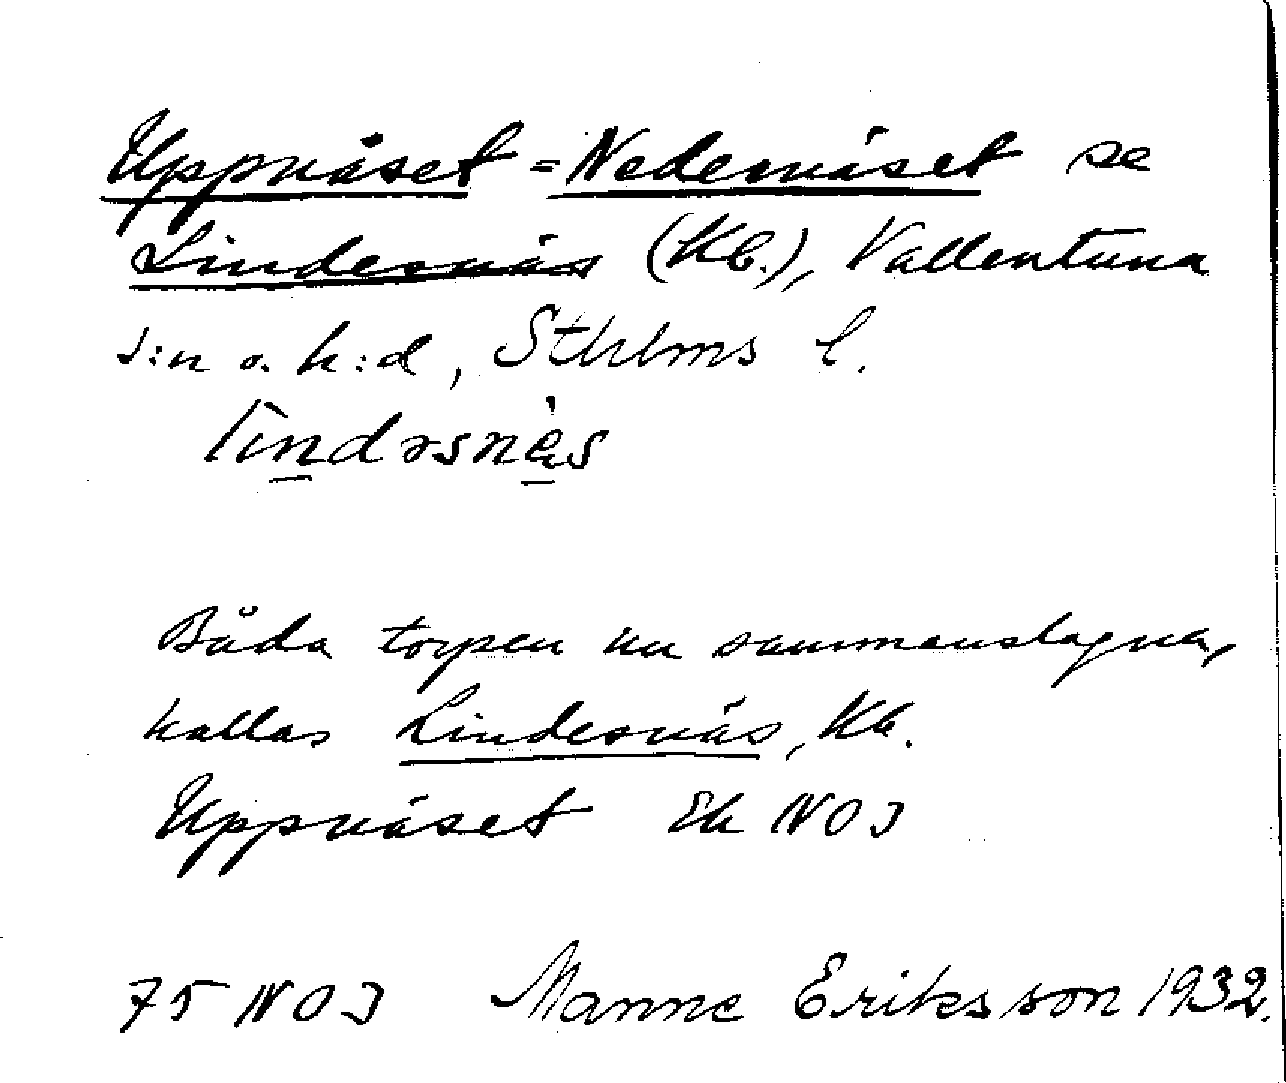 Uppnäset = Nedernäset se
Lindesnäs (Kb.), Vallentuna
s:n o. h:d, Sthlms l.
lìndəsnä̀s
Båda torpen nu sammanslagna,
kallas Lindesnäs, Kb.
Uppnäset Ek NOJ
75 NOJ Manne Eriksson 1932.